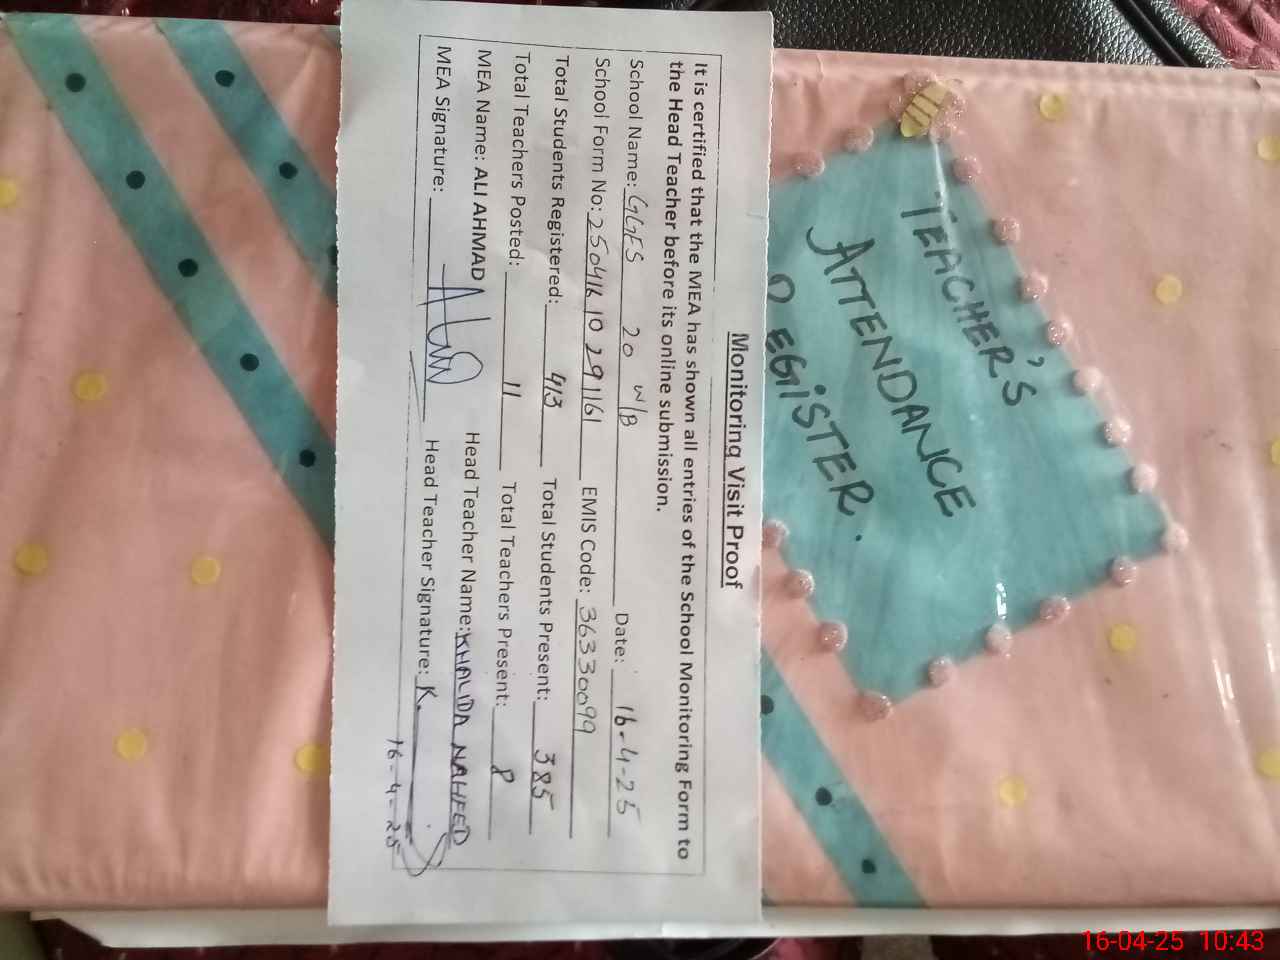 Monitoring Visit Proof
It is certified that the MEA has shown all entries of the School Monitoring Form to
the Head Teacher before its online submission.
School Name: GGES 20 W/B Date: 16-4-25
School Form No: 25041610291161 EMIS Code: 36330099
Total Students Registered: 413 Total Students Present: 385
Total Teachers Posted: 11 Total Teachers Present: 8
MEA Name: ALI AHMAD Head Teacher Name: KHALIDA NAHEED
MEA Signature: Head Teacher Signature: K.
16-4-25
TEACHER'S
ATTENDANCE
REGiSTER.
16-04-25 10:43